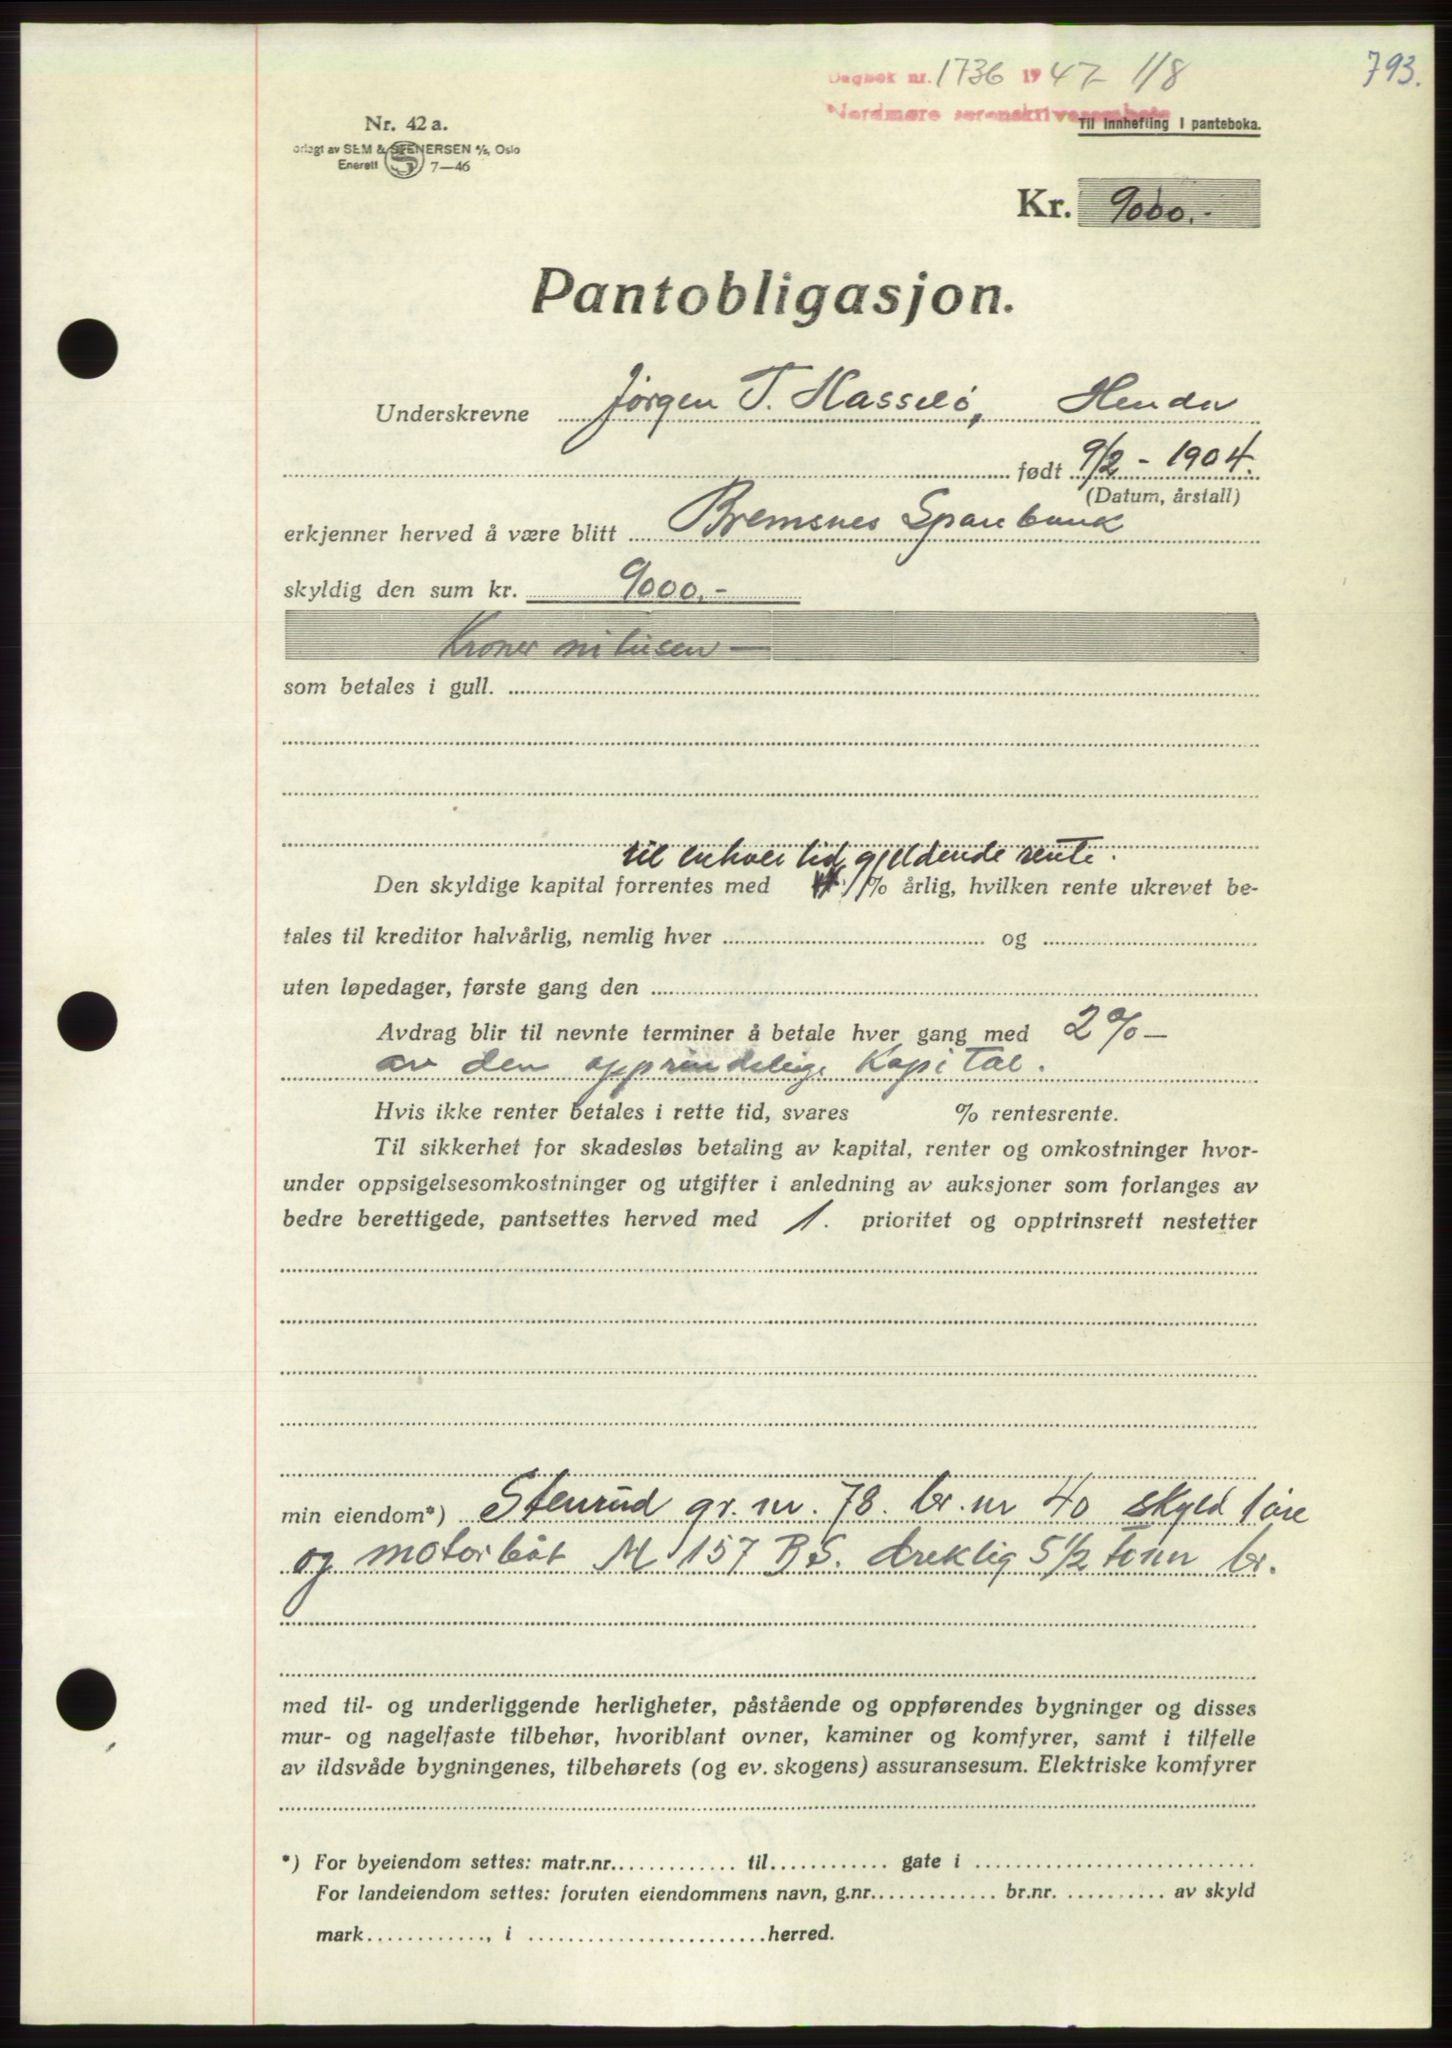 793.
Dagbok nr. 1736 1947 1/8
Nordmøre sorenskriverembete
Til innhefting i panteboka.
Nr. 42 a.
orlagt av SEM & STENERSEN A/S, Oslo
Enerett S 7—46
Kr. 9000.-
Pantobligasjon.
Underskrevne Jørgen T. Hasselø, Hendev
født 9/2 - 1904.
(Datum, årstall)
erkjenner herved å være blitt Bremsnes Sparebank
skyldig den sum kr. 9000.-
Kroner nitusen —
som betales i gull.
til enhver tid gjeldende rente.
Den skyldige kapital forrentes med % årlig, hvilken rente ukrevet be-
tales til kreditor halvårlig, nemlig hver og
uten løpedager, første gang den
Avdrag blir til nevnte terminer å betale hver gang med 2% —
av den opprindelige Kapital.
Hvis ikke renter betales i rette tid, svares % rentesrente.
Til sikkerhet for skadesløs betaling av kapital, renter og omkostninger hvor-
under oppsigelsesomkostninger og utgifter i anledning av auksjoner som forlanges av
bedre berettigede, pantsettes herved med 1. prioritet og opptrinsrett nestetter
min eiendom*) Stenrud gr. nr. 78. br. nr 40 skyld 1 øre
og motorbåt M 157 BS. drektig 5 1/2 tonn br.
med til- og underliggende herligheter, påstående og oppførendes bygninger og disses
mur- og nagelfaste tilbehør, hvoriblant ovner, kaminer og komfyrer, samt i tilfelle
av ildsvåde bygningenes, tilbehørets (og ev. skogens) assuransesum. Elektriske komfyrer
*) For byeiendom settes: matr.nr. til gate i
For landeiendom settes: foruten eiendommens navn, g.nr. br.nr. av skyld
mark , i herred.